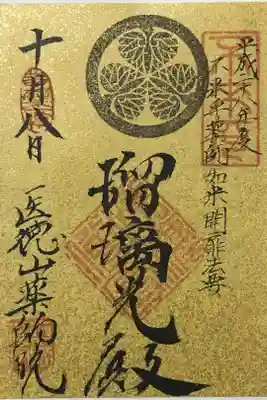 平成二十八年度
薬師如来開扉法要
瑠璃光殿
十月八日
医徳山薬師院